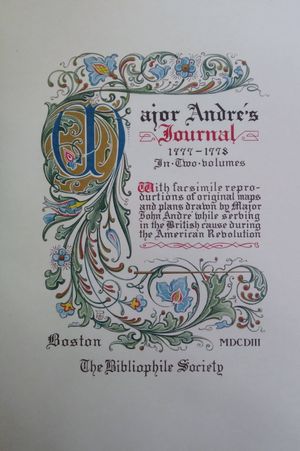 Major André's
Journal
1777-1778
In·Two·volumes
With facsimile repro-
ductions of original maps
and plans drawn by Major
John André while serving
in the British cause during
the American Revolution
Boston MDCDIII
The Bibliophile Society